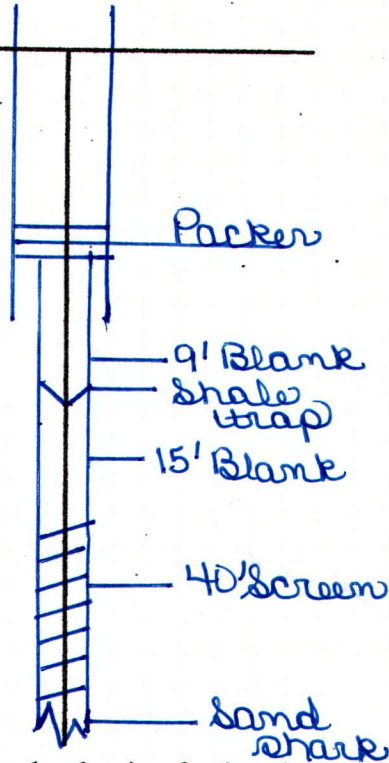 Packer
9' Blank
Shale
trap
15' Blank
40' Screen
Sand
Shark